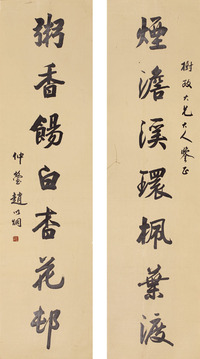 樹政大兄大人正
煙澹溪環楓葉渡
粥香餳白杏花邨
仲瑩趙以炯